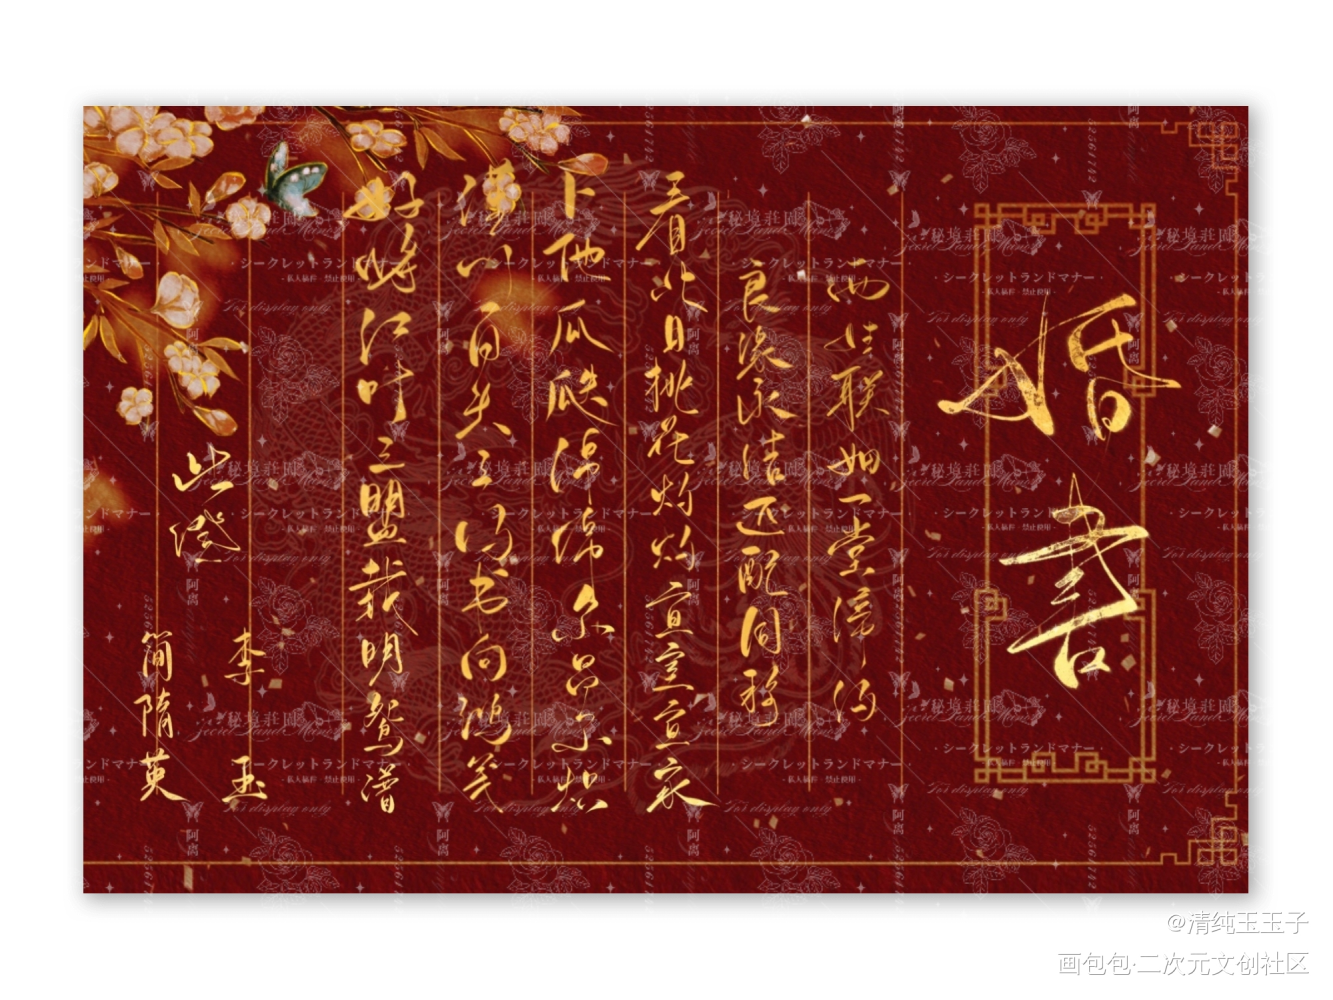 婚书
两姓联姻一堂缔约
良缘永结匹配同称
看此日桃花灼灼宜室宜家
卜他年瓜瓞绵绵尔昌尔炽
谨以白头之约书向鸿笺
好将红叶之盟载明鸳谱
此證
李玉
簡隋英
秘境莊園
シークレットランドマナー
·私人稿件·禁止使用·
For display only
阿离
@清纯玉玉子
画包包·二次元文创社区